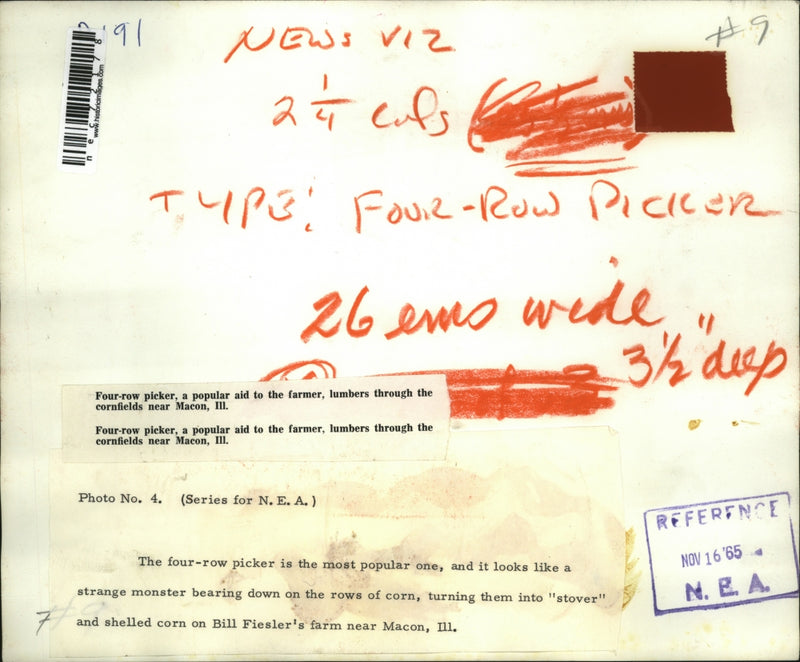 191
NEWS V12
#9
www.historicimages.com
nec72178
2 1/4 cols
TYPE: FOUR-ROW PICKER
26 ems wide
3 1/2" deep
Four-row picker, a popular aid to the farmer, lumbers through the
cornfields near Macon, Ill.
Four-row picker, a popular aid to the farmer, lumbers through the
cornfields near Macon, Ill.
Photo No. 4. (Series for N.E.A.)
The four-row picker is the most popular one, and it looks like a
strange monster bearing down on the rows of corn, turning them into "stover"
and shelled corn on Bill Fiesler's farm near Macon, Ill.
REFERENCE
NOV 16 '65
N.E.A.
#9